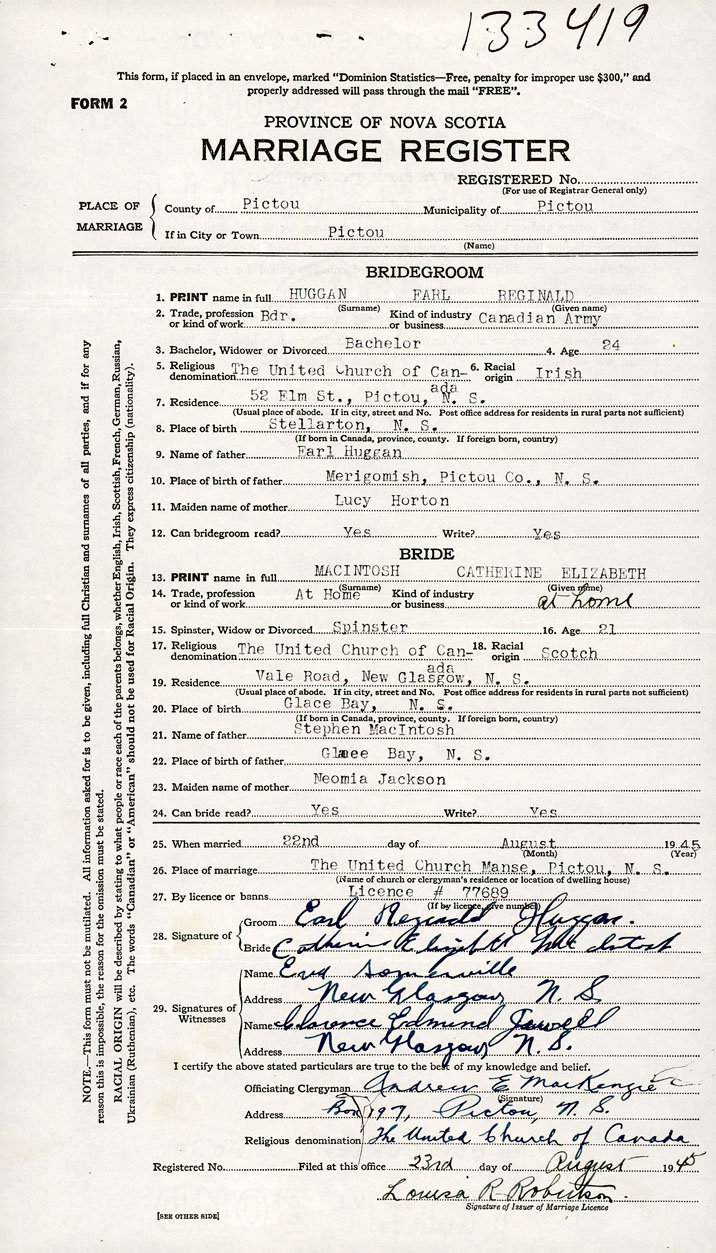 133419
This form, if placed in an envelope, marked "Dominion Statistics—Free, penalty for improper use $300," and
properly addressed will pass through the mail "FREE".
FORM 2
PROVINCE OF NOVA SCOTIA
MARRIAGE REGISTER
REGISTERED No.
(For use of Registrar General only)
PLACE OF MARRIAGE
County of Pictou Municipality of Pictou
If in City or Town Pictou
(Name)
BRIDEGROOM
1. PRINT name in full HUGGAN EARL REGINALD
(Surname) (Given name)
2. Trade, profession or kind of work Bdr. Kind of industry or business Canadian Army
3. Bachelor, Widower or Divorced Bachelor 4. Age 24
5. Religious denomination The United Church of Can-ada 6. Racial origin Irish
7. Residence 52 Elm St., Pictou, N. S.
(Usual place of abode. If in city, street and No. Post office address for residents in rural parts not sufficient)
8. Place of birth Stellarton, N. S.
(If born in Canada, province, county. If foreign born, country)
9. Name of father Earl Huggan
10. Place of birth of father Merigomish, Pictou Co., N. S.
11. Maiden name of mother Lucy Horton
12. Can bridegroom read? Yes Write? Yes
BRIDE
13. PRINT name in full MACINTOSH CATHERINE ELIZABETH
(Surname) (Given name)
14. Trade, profession or kind of work At Home Kind of industry or business at home
15. Spinster, Widow or Divorced Spinster 16. Age 21
17. Religious denomination The United Church of Can-ada 18. Racial origin Scotch
19. Residence Vale Road, New Glasgow, N. S.
(Usual place of abode. If in city, street and No. Post office address for residents in rural parts not sufficient)
20. Place of birth Glace Bay, N. S.
(If born in Canada, province, county. If foreign born, country)
21. Name of father Stephen MacIntosh
22. Place of birth of father Glace Bay, N. S.
23. Maiden name of mother Neomia Jackson
24. Can bride read? Yes Write? Yes
25. When married 22nd day of August 1945
(Month) (Year)
26. Place of marriage The United Church Manse, Pictou, N. S.
(Name of church or clergyman's residence or location of dwelling house)
27. By licence or banns Licence # 77689
(If by licence, give number)
28. Signature of
Groom Earl Reginald Huggan.
Bride Catherine Elizabeth MacIntosh
29. Signatures of Witnesses
Name Eva Somerville
Address New Glasgow N. S.
Name Clarence Edmund Jewell
Address New Glasgow N. S.
I certify the above stated particulars are true to the best of my knowledge and belief.
Officiating Clergyman Andrew E MacKenzie
(Signature)
Address Box 197, Pictou, N. S.
Religious denomination The United Church of Canada
Registered No. Filed at this office 23rd day of August 1945
Louisa R Robertson.
Signature of Issuer of Marriage Licence
[SEE OTHER SIDE]
NOTE.—This form must not be mutilated. All information asked for is to be given, including full Christian and surnames of all parties, and if for any
reason this is impossible, the reason for the omission must be stated.
RACIAL ORIGIN will be described by stating to what people or race each of the parents belongs, whether English, Irish, Scottish, French, German, Russian,
Ukrainian (Ruthenian), etc. The words "Canadian" or "American" should not be used for Racial Origin. They express citizenship (nationality).